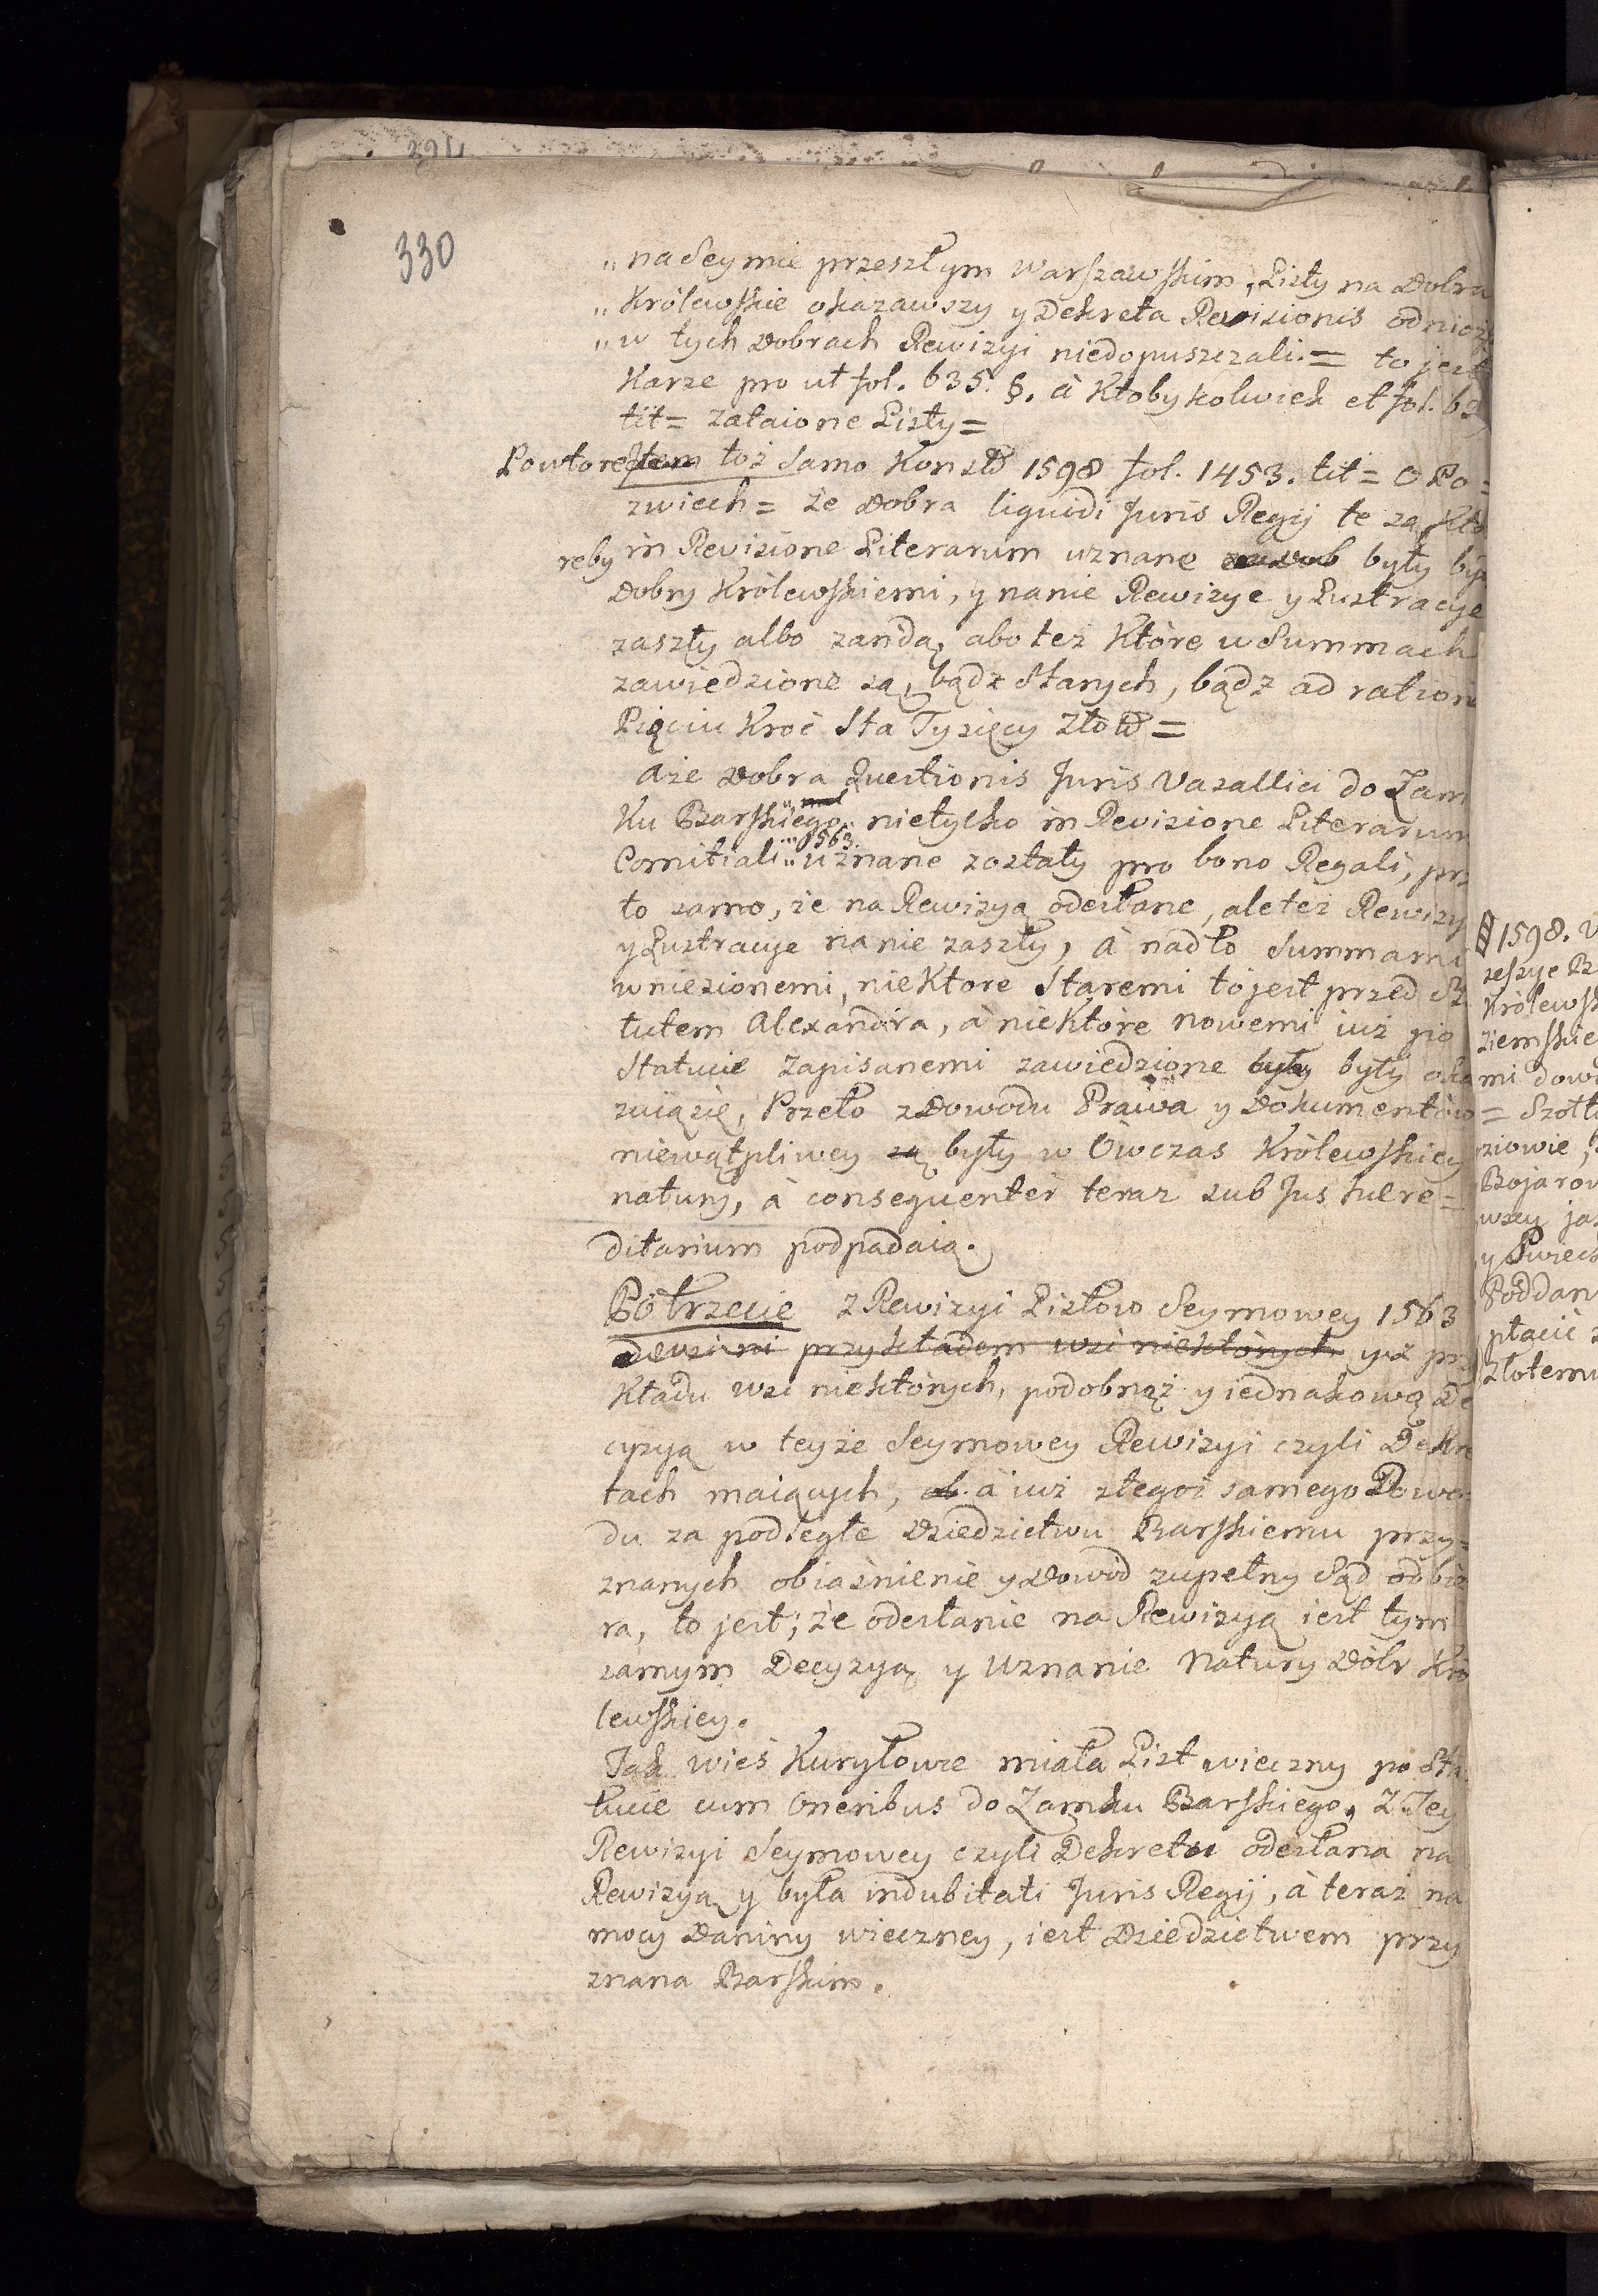 330
„ na Seymie przeszłym Warszawskim, Listy na Dobra
„ Królewskie okazawszy y Dekreta Revisionis odniozs
„ w tych Dobrach Rewizyi niedopuszczali. = to jest
Karze pro ut fol. 635. §. à Ktobykolwiek et fol. 63
tit = zataione Listy =
Powtore Item toż samo Konstō 1598 fol. 1453. tit = O Po=
zwiech = że Dobra liquidi Juris Regij te są Kto
reby in Revisione Literarum uznane były by
Dobry Królewskiemi, y nanie Rewizye y Lustracye
zaszły albo zanidą, abo też Które w Summach
zawiedzione są, bądz Starych, bądz ad ration
Pięciu Kroć Sta Tysięcy Złotō =
Aże Dobra Questionis Juris Vasallici do Zam
Ku Barskiego nietylko in Revisione Literarum
Comitiali „ 1563. uznane zostały pro bono Regali, prz
to samo, że na Rewizyą odesłane, ale też Rewizy
y Lustracye nanie zaszły, à nadto Summami
wniesionemi, nieKtore Staremi to jest przed St
tutem Alexandra, à nieKtóre nowemi iuż po
Statucie zapisanemi zawiedzione były były oka
zuią się, Przeto z Dowodu Prawa y Dokumentów
niewątpliwey są były w Ówczas Królewskiey
natury, à consequenter teraz sub Jus Hære=
ditarium podpadaią.
Po trzecie z Rewizyi Listow Seymowey 1563
przykładem wsi niektórych y z prz
Kładu wsi niektórych, podobnąż y iednakową De
cyzyą w teyże Seymowey Rewizyi czyli Dekre
tach maiących, à iuż ztegoż samego Dowo=
du za podległe Dziedzictwu Barskiemu przy=
znanych obiaśnienie y Dowód zupełny Sąd odbie
ra, to jest; że odesłanie na Rewizyą iest tym
samym Decyzyą y Uznanie Natury Dóbr Kró
lewskiey.
Tak wieś Kuryłowce miała List wieczny po Sta
tucie cum Oneribus do Zamku Barskiego, z Tey
Rewizyi Seymowey czyli Dekretu odesłana na
Rewizyą y była indubitati Juris Regij, à teraz na
mocy Daniny wieczney, iest Dziedzictwem przy
znana Barskim.
§ 1598. V
zeszye B
Królewsk
ziemskie
mi dowo
= Szołt
ziowie,
Bojarow
wszy jas
y Swiec
Poddan
płacić z
złotemu